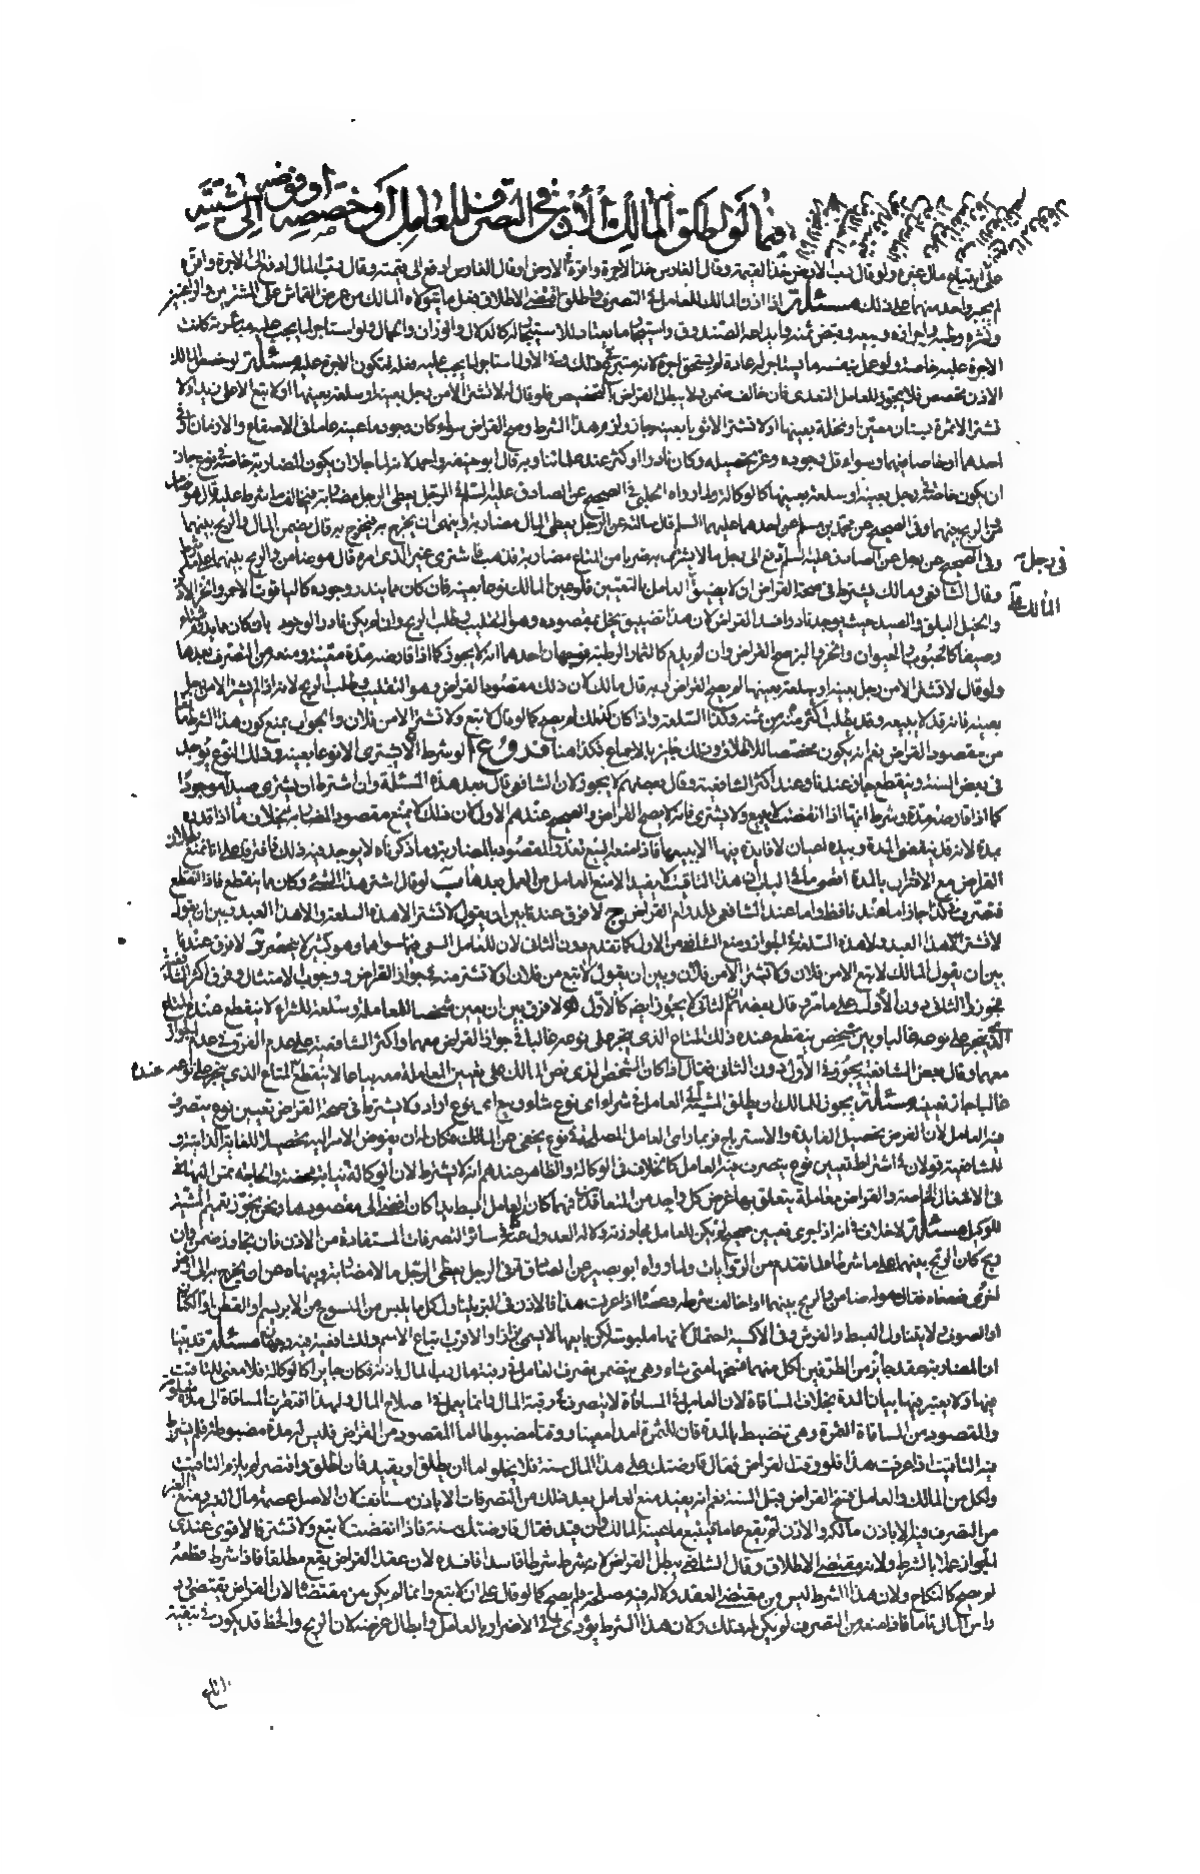 فيما لو اطلق المالك الاذن في التصرف للعامل او خصصه او فوضه الى مشيته
على ان يبتاع مال عينى ولو قال رب الارض خذ القيمة وقال الغارس خذ الاجرة وافرغ الارض او قال الغارس ادفع الى قيمته وقال رب المال ادفع الى الاجرة واقره
لم يجبر واحد منهما على ذلك مسئلة اذا اذن المالك للعامل في التصرف واطلق اقتضى الاطلاق فعل ما يتولاه المالك من عرض القماش على المشترين
ونشره وطيه واحرازه وبيعه وقبض ثمنه وايداعه الصندوق واستيجار ما يعتاد للاستيجار له كالدلال والوزان والحمال ولو استاجر لما يجب عليه مباشرته كانت
الاجرة عليه خاصة ولو عمل بنفسه ما يستاجر له عادة لم يستحق اجرة لانه متبرع في ذلك ولو استاجر لما يجب عليه فعله لتكون الاجرة عليه مسئلة لو خصص المالك
الاذن تخصص فلا يجوز للعامل التعدى فان خالف ضمن ولا يبطل القراض بالتخصيص فلو قال له لا تشتر الا من رجل بعينه او سلعة بعينها او لا تبع الا على زيد او لا
تشتر الا ثمرة بستان معين او نخلة بعينها او لا تشتر الا ثوبا بعينه جاز ولزم هذا الشرط وصح القراض سواء كان وجود ما عينه عاما في الاصقاع والازمان او في
احدهما او خاصا فيهما وسواء قل وجوده وعز تحصيله وكان نادرا او كثر عند علمائنا وبه قال ابو حنيفة واحمد لانه لما جاز ان يكون المضاربة خاصة في نوع جاز
ان يكون خاصة في رجل بعينه او سلعة بعينها كالوكالة ولما رواه الحلبي في الصحيح عن الصادق عليه السلم في الرجل يعطى الرجل مضاربة فيخالف ما شرط عليه قال هو ضامن
والربح بينهما وفي الصحيح عن محمد بن مسلم عن احدهما عليهما السلم قال سالته عن الرجل يعطى المال مضاربة وينهى ان يخرج به فيخرج به قال يضمن المال والربح بينهما
وفي الصحيح عن رجل عن الصادق عليه السلم في رجل دفع الى رجل مالا يشترى به ضربا من المتاع مضاربة فذهب فاشترى غير الذى امره قال هو ضامن والربح بينهما على ما شرط
وقال الشافعى ومالك يشترط في صحة القراض ان لا يضيق العامل بالتعيين فلو عين المالك نوعا بعينه فان كان مما يندر وجوده كالياقوت الاحمر والخز الادكن
والخيل البلق والصيد حيث يوجد نادرا فسد القراض لان هذا تضييق يخل بمقصوده وهو التقليب وطلب الربح وان لم يكن نادر الوجود
وصيفا كالحبوب والحيوان والخز والبز صح القراض وان لم يدم كالثمار الرطبة فوجهان احدهما انه لا يجوز كما اذا قارضه مدة معينة ومنعه من التصرف بعدها
ولو قال لا تشتر الا من رجل بعينه او سلعة بعينها لم يصح القراض وبه قال مالك لان ذلك مقصود القراض وهو التقليب وطلب الربح لانه اذا لم يشتر الا من رجل
بعينه فانه قد لا يبيعه وقد يطلب اكثر من ثمنه وكذا السلعة واذا كان كذلك لم يصح كما لو قال لا تبع ولا تشتر الا من فلان والجواب يمنع كون هذا الشرط مانعا
من مقصود القراض نعم انه يكون مخصصا للاطلاق وذلك جائز بالاجماع فكذا هنا فروع ا لو شرط الا يشترى الا نوعا بعينه وذلك النوع يوجد
في بعض السنة وينقطع جاز عندنا وعند اكثر الشافعية وقال بعضهم لا يجوز لان الشافعى قال بعد هذه المسئلة وان اشترط ان يشترى صيدا موجودا
كما اذا قارضه مدة وشرط انها اذا انقضت لا يبيع ولا يشترى فانه لا يصح القراض والصحيح عندهم الاول لان ذلك لا يمنع مقصود القراض بخلاف ما اذا قدره
بمدة لانه قد ينقضى المدة وبيده اعيان لا فايدة فيها الا ببيعها فاذا منعه البيع تعذر المقصود بالمضاربة وما ذكرناه لا يوجد فيه ذلك فافترقا على انا نمنع بطلان
القراض مع الاقتران بالمدة اقصى ما في الباب ان هذا التاقيت لا يفيد الا منع العامل من العمل بعدها ب لو قال اشتر هذا الشىء وكان مما ينقطع فاذا انقطع
فتصرف في كذا جاز اما عندنا فظ واما عند الشافعى فلدوام القراض ج لا فرق عندنا بين ان يقول لا تشتر الا هذه السلعة والا هذا العبد وبين ان يقول
لا تشتر هذا العبد ولا هذه السلعة في الجواز ومنع الشافعى من الاول كما تقدم دون الثانى لان للعامل السعى فيما سواها وهو كثير لا ينحصر د لا فرق عندنا
بين ان يقول المالك لا تبع الا من فلان ولا تشتر الا من فلان وبين ان يقول لا تبع من فلان ولا تشتر منه في جواز القراض ووجوب الامتثال وفرق اكثر الشافعية
بجوز والثانى دون الاول على ما مر وقال بعضهم الثانى لا يجوز ايضا كالاول ه لا فرق بين ان يعين شخصا للمعاملة وسلعة للشراء لا ينقطع عنده المتاع
الذى يتجر على نوعه غالبا وبين شخص ينقطع عنده ذلك المتاع الذى يتجر على نوعه غالبا في جواز القراض معهما واكثر الشافعية على عدم الفرق في عدم الجواز
معهما وقال بعض الشافعية يجوز في الاول دون الثانى فقال اذا كان الشخص الذى نص المالك على تعيين المعاملة معه بياعا لا ينقطع عنده المتاع الذى يتجر على نوعه
غالبا جاز تعيينه مسئلة يجوز للمالك ان يطلق المشية الى العامل في شراء اى نوع شاء وبيع اى نوع اراد ولا يشترط في صحة القراض تعيين نوع يتصرف
فيه العامل لان الغرض تحصيل الفايدة والاسترباح فربما راى العامل المصلحة في نوع يخفى عن المالك فكان له ان يفوض الامر اليه تحصيلا للغاية الذاتية وفي
للشافعية قولان في اشتراط تعيين نوع يتصرف فيه العامل كالخلاف في الوكالة والظاهر عندهم انه لا يشترط لان الوكالة نيابة محضة والحاجة تمس اليها
في الاشغال الخاصة والقراض معاملة يتعلق بها غرض كل واحد من المتعاقدين فمهما كان العامل ابسط يدا كان افضى الى مقصودهما ونحن نجوز تعميم المشية
للوكيل مسئلة لا خلاف في انه اذا جرى تعيين صحيح لم يكن للعامل مجاوزته ولا له العدول عنه كما في سائر التصرفات المستفادة من الاذن فان تجاوز ضمن وان
ربح كان الربح بينهما على ما شرطا لما تقدم من الروايات ولما رواه ابو بصير عن الصادق في الرجل يعطى الرجل مالا مضاربة وينهاه عن ان يخرج به الى ارض
اخرى فعصاه فقال هو له ضامن والربح بينهما اذا خالف شرطه وعصاه اذا عرفت هذا فالاذن في البز يتناول كل ما يلبس من المنسوج من الابريسم او القطن او الكتان
او الصوف ولا يتناول البسط والفرش وفى الاكسية احتمال لانها ملبوسة لكن بايعها لا يسمى بزازا والاقرب اتباع الاسم وللشافعية فيه وجهان مسئلة قد بينا
ان المضاربة عقد جائز من الطرفين لكل منهما فسخها متى شاء وهى يتضمن تصرف العامل في رقبة مال رب المال باذنه فكان جايزا كالوكالة فلا معنى للتاقيت
فيها ولا يعتبر فيها بيان المدة بخلاف المساقاة لان العامل في المساقاة لا يتصرف في رقبة المال فانما يعمل في اصلاح المال ولهذا افتقرت المساقاة الى مدة معلومة
والمقصود من المساقاة الثمرة وهى تنضبط بالمدة فان للثمرة امدا معينا ووقتا مضبوطا اما المقصود من القراض فليس له مدة مضبوطة فلم يشترط
فيه التاقيت اذا عرفت هذا فلو وقت القراض فقال قارضتك على هذا المال سنة فلا يخلو اما ان يطلق او يقيد فان اطلق واقتصر لم يلزم التاقيت
ولكل من المالك والعامل فسخ القراض قبل السنة نعم انه يفيد منع العامل بعد ذلك من التصرفات الا باذن مستانف لان الاصل عصمة مال الغير ومنع الغير
من التصرف فيه الا باذن مالكه والاذن لم يقع عاما فيتبع ما عينه المالك وان قيد فقال قارضتك سنة فاذا انقضت لا تبع ولا تشتر فالاقوى عندى
الجواز عملا بالشرط ولانه مقتضى الاطلاق وقال الشافعى يبطل القراض لانه شرط شرطا فاسدا فافسده لان عقد القراض يقع مطلقا فاذا شرط قطعه
لم يصح كالنكاح ولان هذا الشرط ليس من مقتضى العقد ولا له فيه مصلحة فلم يصح كما لو قال على ان لا تبع وانما لم يكن من مقتضاه لان القراض يقتضى رد
راس المال تاما فاذا منعه من التصرف لم يكن له ذلك ولان هذا الشرط يؤدى الى الاضرار بالعامل وابطال غرضه لان الربح والحظ قد يكون في تبقية